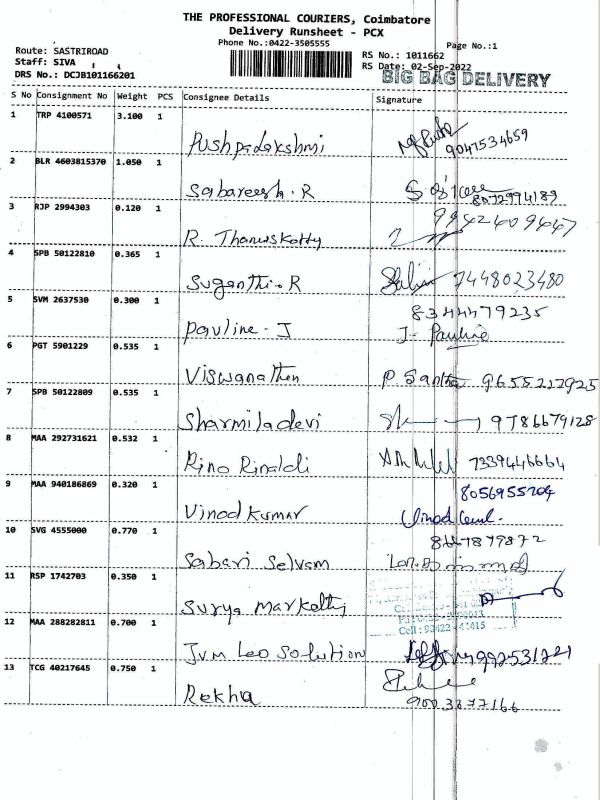 THE PROFESSIONAL COURIERS, Coimbatore
Delivery Runsheet - PCX
Phone No.:0422-3505555
Page No.:1
Route: SASTRIROAD
RS No.: 1011662
Staff: SIVA
RS Date: 02-Sep-2022
DRS No.: DCJB101166201
BIG BAG DELIVERY
S No Consignment No Weight PCS Consignee Details Signature
1 TRP 4100571 3.100 1
Pushpadakshmi 9047534659
2 BLR 4603815370 1.050 1
Sabareesh.R 8072994189
3 RJP 2994303 0.120 1
R. Thanuskotty 9942409647
4 SPB 50122810 0.365 1
Suganthi.R 7448023480
5 SVM 2637530 0.300 1
8344479235
Pauline-J J- Pauline
6 PGT 5901229 0.535 1
Viswanathan P. Santha 9655227925
7 SPB 50122809 0.535 1
Sharmiladevi 9786679128
8 MAA 292731621 0.532 1
Rino Rinaldi 7339446664
9 MAA 940186869 0.320 1
8056955204
Vinod Kumar
10 SVG 4555000 0.770 1
8667879872
Sabari Selvam
11 RSP 1742703 0.350 1
Surya Marketing
12 MAA 288282811 0.700 1
Cell: 
Jvm Leo Solution
13 TCG 40217645 0.750 1
Rekha 9003877166